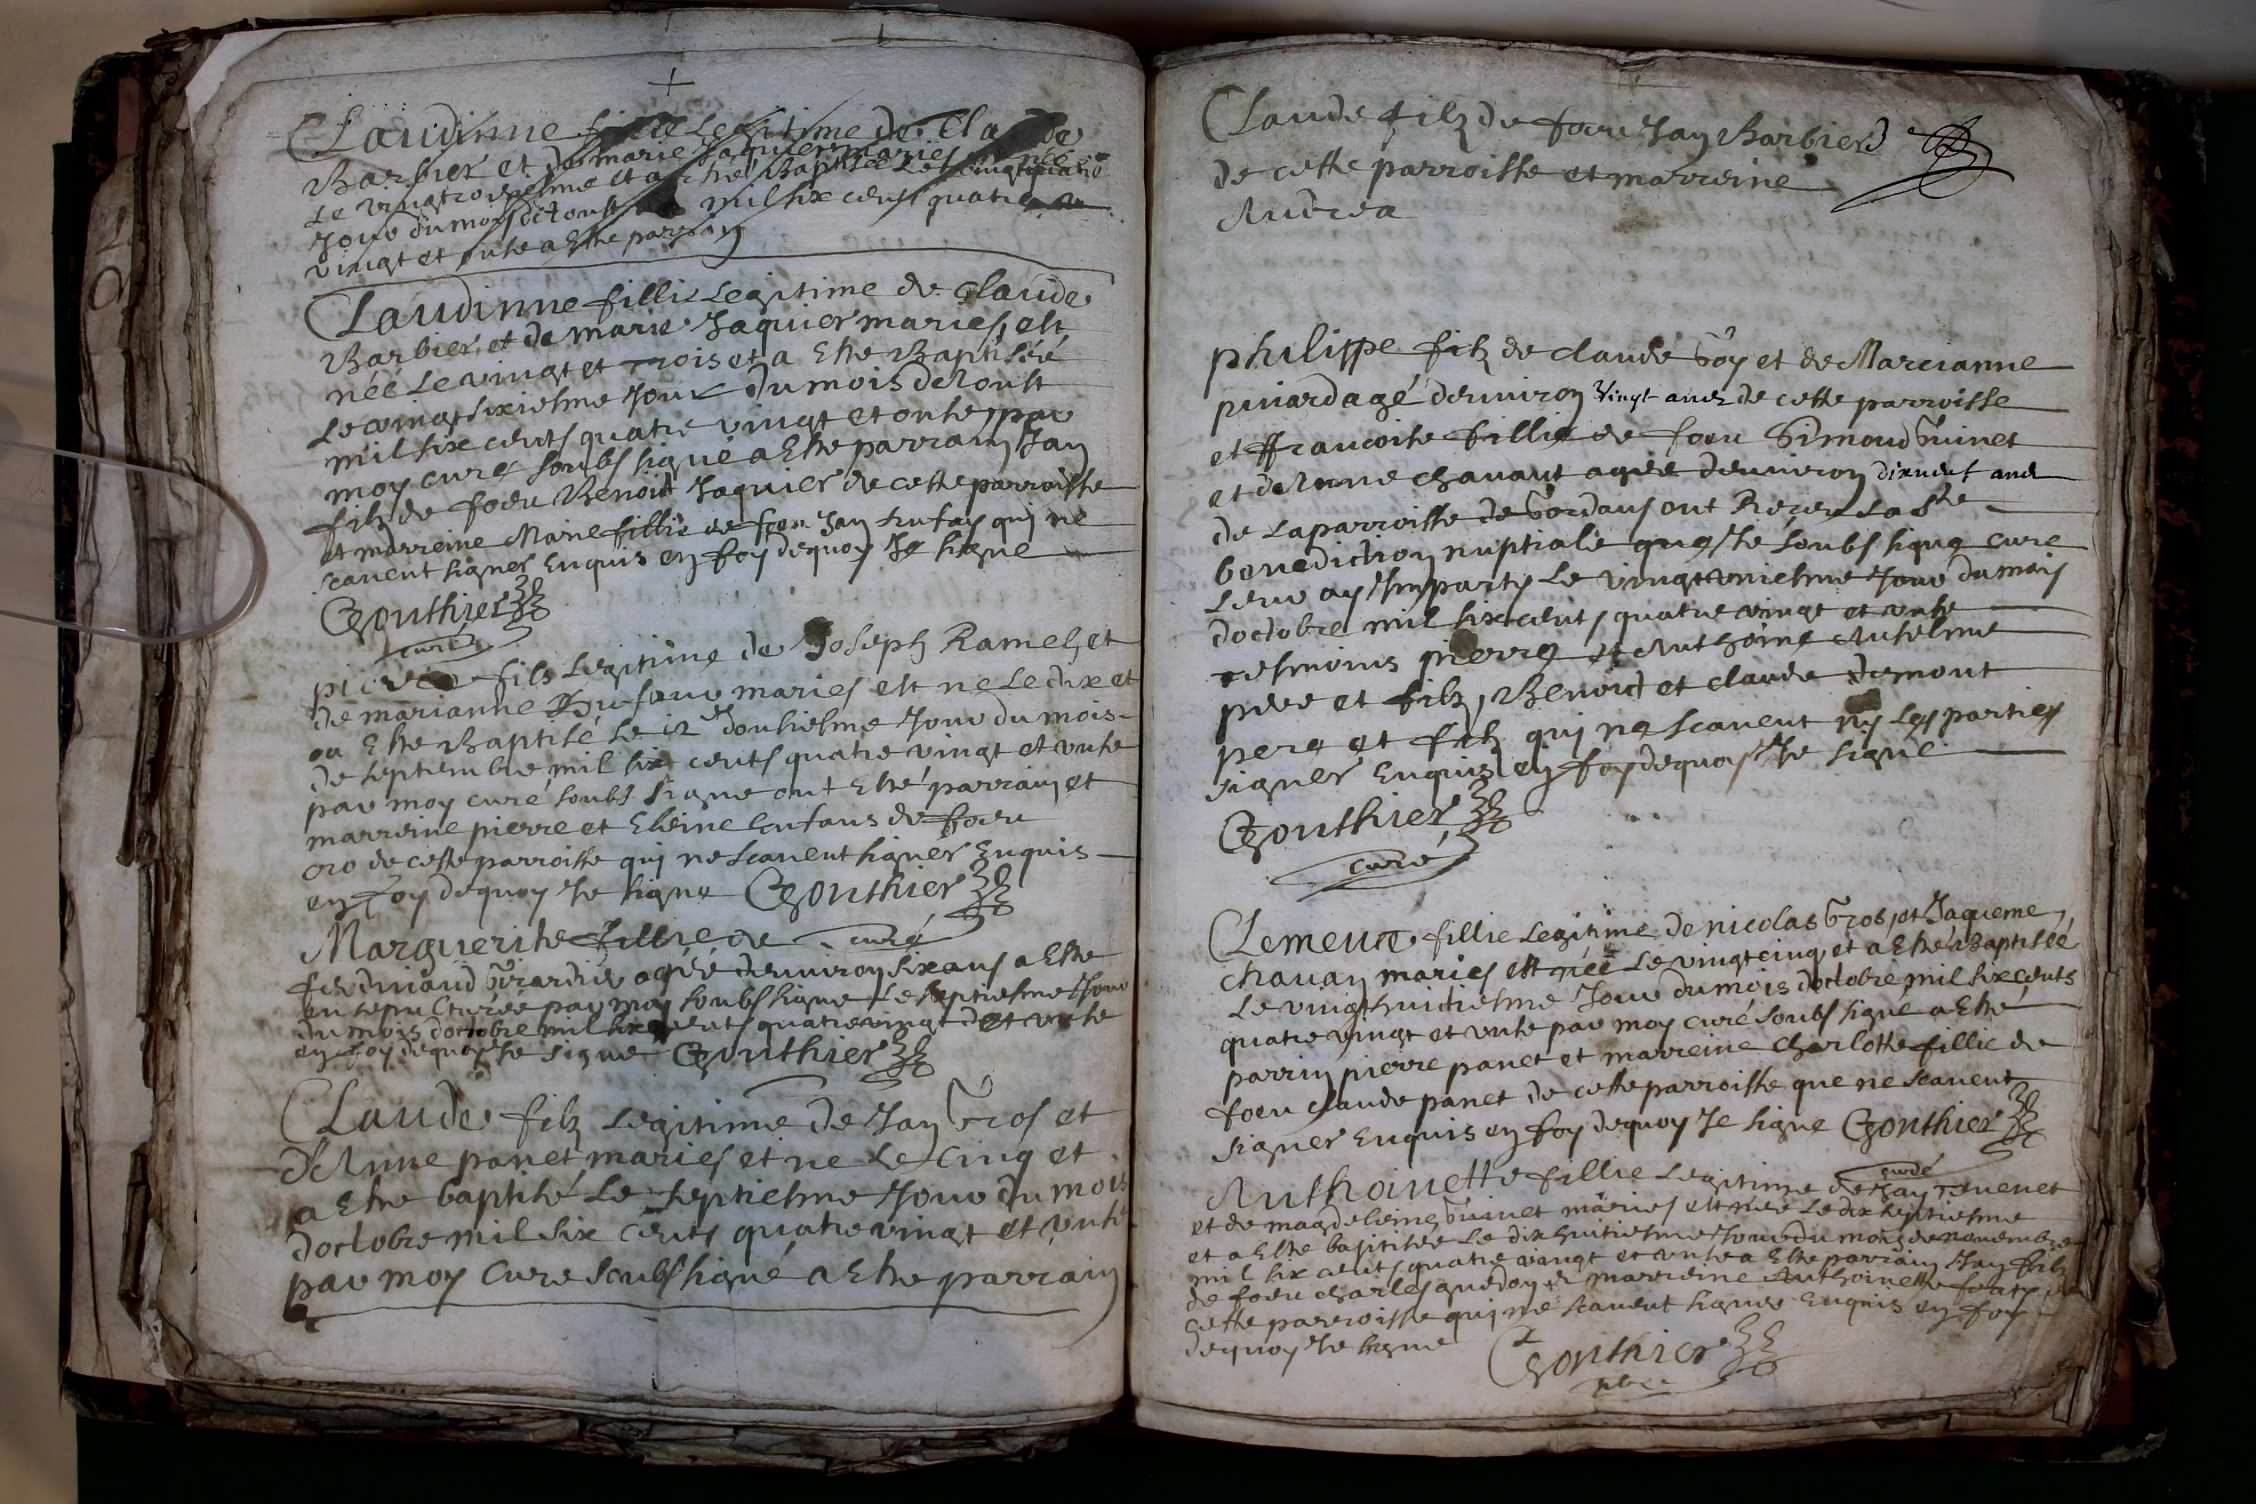 Claudinne fillie Legitime de Claude
Barbier et de marie Jaquier maries née
Le vingtroisiesme et a esté Baptisée Le vingtquatre
Jour du mois d'Aoust mil six cents quatre
vingt et unse a Esté parrain
Claudinne fillie Legitime de Claude
Barbier et de marie Jaquier maries, est
née Le vingt et trois et a Esté Baptisée
Le vingt sixiesme Jour du mois de Aoust
mil six cents quatre vingt et onse par
moy curé soubs signé a Esté parrain Jan
filz de foeu Benoid Jaquier de cette parroisse
et marreine Marie fillie de foeu Jan qui ne
scavent signer Enquis en foy dequoy Je signe
Gonthier
curé
pierre fils Legitime de Joseph Ramel et
de marianne Dufour maries est ne Le dix et
a Esté Baptisé le 12 douhiesme Jour du mois
de septembre mil six cents quatre vingt et unse
par moy curé soubs signe ont Esté parrain et
marreine pierre et Eleine Enfans de foeu
cro de cette parroisse qui ne scavent signer Enquis
en foy dequoy Je signe Gonthier
curé
Marguerite fillie de
ferdinand Girardin agée denviron six ans a Esté
ensepulturée par moy soubs signe Le septiesme Jour
du mois doctobre mil six cents quatre vingt et unse
en foy dequoy Je signe Gonthier
Claude filz Legitime de Jan Gros et
d'Anne panet maries et ne Le Cinq et
a Esté baptisé Le septiesme Jour du mois
doctobre mil six cents quatre vingt et unse
par moy Cure soubs signé a Esté parrain
Claude filz de foeu Jan Barbier
de cette parroisse et marreine
Andrea
philippe filz de claude Goy et de Marcianne
pinard agé denviron vingt ans de cette parroisse
et ffrancoise fillie de foeu Simond Guinet
et de Anne chavant agée denviron dixneuf ans
de La parroisse de Gordans ont Receu La Ste
benediction nuptiale que Je soubs signe cure
Leur ay Imparty Le vingt uniesme Jour du mois
doctobre mil six cents quatre vingt et unse
tesmoins pierre et Anthoine Anselme
pere et filz, Benoid et claude demont
pere et filz qui ne scavent ny Les parties
signer Enquis en foy dequoy Je signe
Gonthier
curé
Clemence fillie Legitime de nicolas Gros, et Jaqueme
chavan maries est née Le vingtcinq et a Esté Baptisée
Le vingthuictiesme Jour du mois doctobre mil six cents
quatre vingt et unse par moy curé soubs signé a Esté
parrin pierre panet et marreine charlotte fillie de
foeu claude panet de cette parroisse que ne scavent
signer Enquis en foy dequoy Je signe Gonthier
curé
Anthoinette fillie Legitime de Jan Tevenet
et de magdeleine Guinet maries est née Le dix septiesme
et a Esté baptisée Le dix huitiesme Jour du mois de novembre
mil six cents quatre vingt et unse a Esté parrain Jan filz
de foeu charles guedon et marreine Anthoinette de
cette parroisse qui ne scavent signer Enquis en foy
dequoy Je signe Gonthier